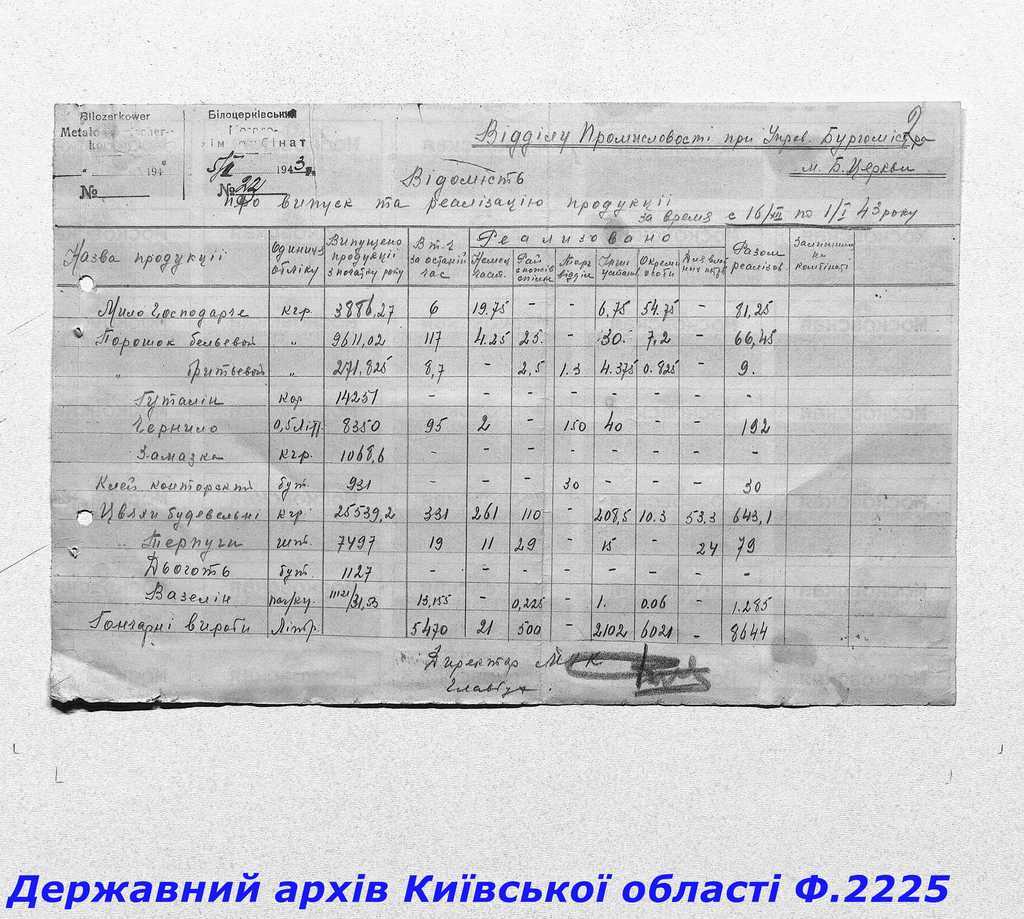 2
Bilozerkower Білоцерківський
Metalo
комбінат
194 5/II 1943 р.
№ № 22
Відділу Промисловості при Управ. Бургомістра
м. Б. Церкви
Відомість
про випуск та реалізацію продукції
за время с 16/XII по 1/I 43 року
Назва продукції Одиниця обліку Випущено продукції з початку року В т.ч. за останній час Реализовано Разом реалізов Залишили на комбінаті
Немец част. Рай спожів спілк Торг відділ Інші устанав Окремі особи
Мило Господарче кгр. 3886,27 6 19.75 - - 6.75 54.75 - 81,25
Порошок бельевой " 9611,02 117 4.25 25. - 30. 7,2 - 66,45
" бритьевой " 271,825 8,7 - 2,5 1.3 4.375 0.825 - 9.
Гуталін кор 14251 - - - - - - - -
Чернило 0,5 літр. 8350 95 2 - 150 40 - - 192
Замазка кгр. 1068,6 - - - - - - - -
Клей конторскі бут. 931 30 30
Цвяхи будевельні кгр. 25539,2 331 261 110 - 208,5 10.3 53,3 643,1
Терпуги шт. 7497 19 11 29 - 15 - 24 79
Дьоготь бут. 1127 - - - - - - - -
Вазелін 13,155 - 0,225 - 1. 0.06 - 1.285
Гончарні вироби Літр. 5470 21 500 - 2102 6021 - 8644
Директор МХК
Главбух.
Державний архів Київської області Ф.2225